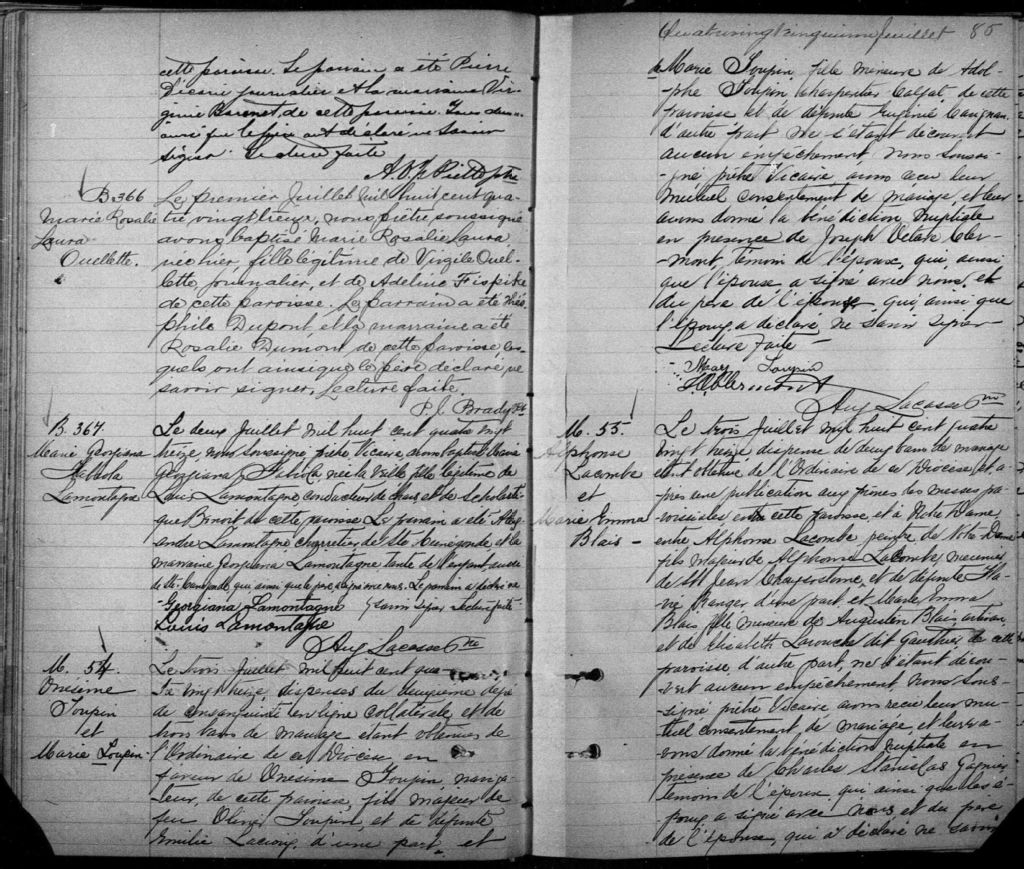 cette paroisse. Le parrain a été Pierre
Dicaire journalier et la marraine Vir-
ginie de cette paroisse.
ainsi que le père ont déclaré ne savoir
signer. Lecture faite
B. 366
Marie Rosalie
Laura
Ouellette.
Le premier Juillet mil huit cent qua-
tre vingt treize, nous prêtre soussigné
avons baptisé Marie Rosalie Laura,
née hier, fille légitime de Virgile Ouel-
lette journalier, et de Adeline
de cette paroisse. Le parrain a été Théo
phile Dupont et la marraine a été
Rosalie Dumont de cette paroisse les-
quels ont ainsi que le père déclaré ne
savoir signer. Lecture faite.
P. J. Brady Ptr
B. 367
Marie Georgiana
Lamontagne
Le deux Juillet mil huit cent quatre vingt
treize nous soussigné, prêtre Vicaire avons baptisé Marie
Georgiana née la veille fille légitime de
Louis Lamontagne conducteur de chars, et de Scholasti-
que Benoit de cette paroisse Le parrain a été Alex-
andre Lamontagne charretier de Ste Cunégonde, et la
marraine Georgiana Lamontagne tante de l'enfant aussi
de Ste Cunégonde qui ainsi que le père a signé avec nous. Le parrain a déclaré ne
Georgiana Lamontagne savoir signer Lecture faite
Louis Lamontagne
Aug Lacasse
M. 54
Onésime
Toupin
et
Marie Toupin
Le trois Juillet mil huit cent qua-
tre vingt treize, dispenses du deuxième degré
de consanguinité en ligne collatérale, et de
trois bans de mariage étant obtenues de
l'Ordinaire de ce Diocèse en
faveur de Onésime Toupin naviga-
teur, de cette paroisse, fils majeur de
feu Olivier Toupin, et de défunte
Emilie d'une part, et
Quatrevingt cinquième feuillet 85
de Marie Toupin fille mineure de Adol-
phe Toupin charpentier calfat de cette
paroisse et de défunte Eugénie
d'autre part ne s'étant découvert
aucun empêchement nous soussi-
gné prêtre Vicaire avons reçu leur
mutuel consentement de mariage, et leur
avons donné la bénédiction nuptiale
en présence de Joseph Cler-
mont, témoin de l'épouse, qui ainsi
que l'épouse a signé avec nous, et
du père de l'époux, qui ainsi que
l'époux a déclaré ne savoir signer
Lecture faite -
Mary Toupin
Clermont
Aug Lacasse
M. 55.
Alphonse
Lacombe
et
Marie Emma
Blais -
Le trois Juillet mil huit cent quatre
vingt treize dispense de deux bans de mariage
étant obtenue de l'Ordinaire de ce Diocèse, et a-
près une publication aux prônes des messes pa-
roissiales en cette paroisse, et à Notre Dame,
entre Alphonse Lacombe peintre de Notre Dame
fils majeur de Alphonse Lacombe meunier
de St Jean Chrysostome, et de défunte Fla-
vie Ranger d'une part, et Marie Emma
Blais fille mineure de Augustin Blais
et de Elisabeth Larouche dit Gauthier, de cette
paroisse d'autre part, ne s'étant décou-
vert aucun empêchement, nous sous-
signé prêtre Vicaire avons reçu leur mu-
tuel consentement de mariage, et leur a-
vons donné la bénédiction nuptiale en
présence de Charles Stanislas Gagnier
témoin de l'époux qui ainsi que les é-
poux a signé avec nous et du père
de l'épouse, qui a déclaré ne savoir